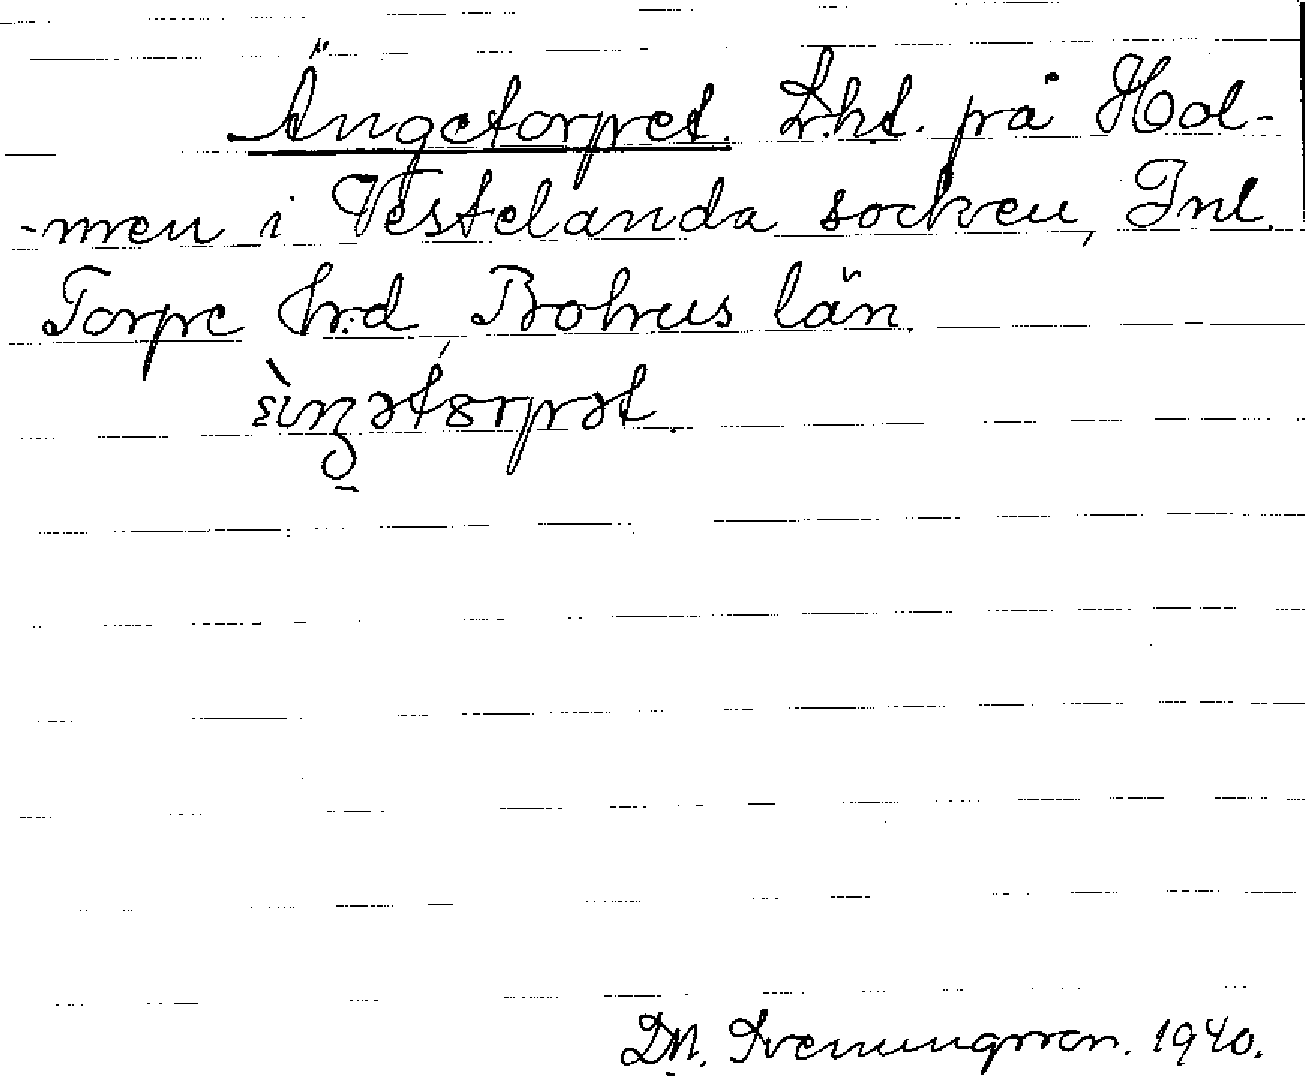 Ängetorpet. Lht. på Hol-
-men i Vestelanda socken, Inl.
Torpe hrd, Bohus län.
Svenungsson. 1940.